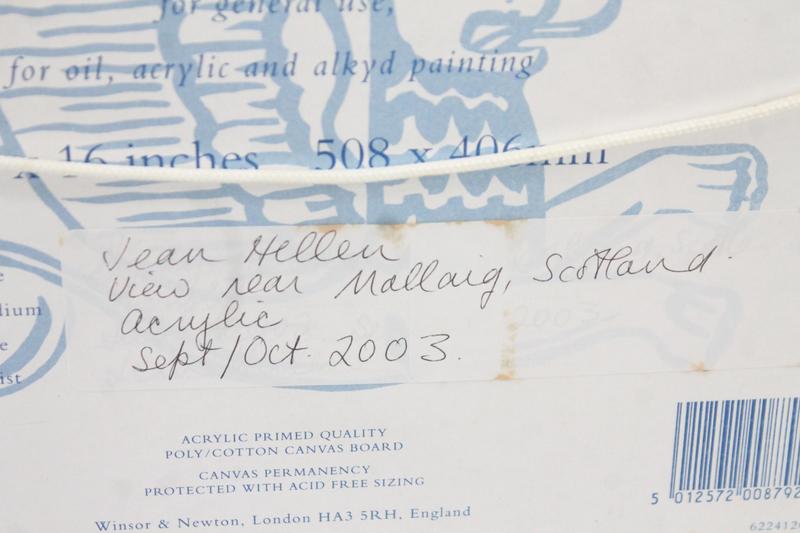 for general use,
for oil, acrylic and alkyd painting
x 16 inches 508 x 406mm
Jean Hellen
View near Mallaig, Scotland.
Acrylic
Sept/Oct. 2003.
2003
dium
e
ist
ACRYLIC PRIMED QUALITY
POLY/COTTON CANVAS BOARD
CANVAS PERMANENCY
PROTECTED WITH ACID FREE SIZING
Winsor & Newton, London HA3 5RH, England
5 012572 008792
622412